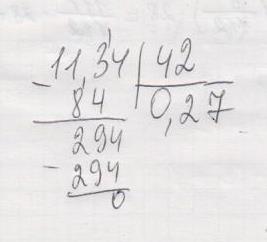 11,34 | 42
- 84 | 0,27
294
- 294
0